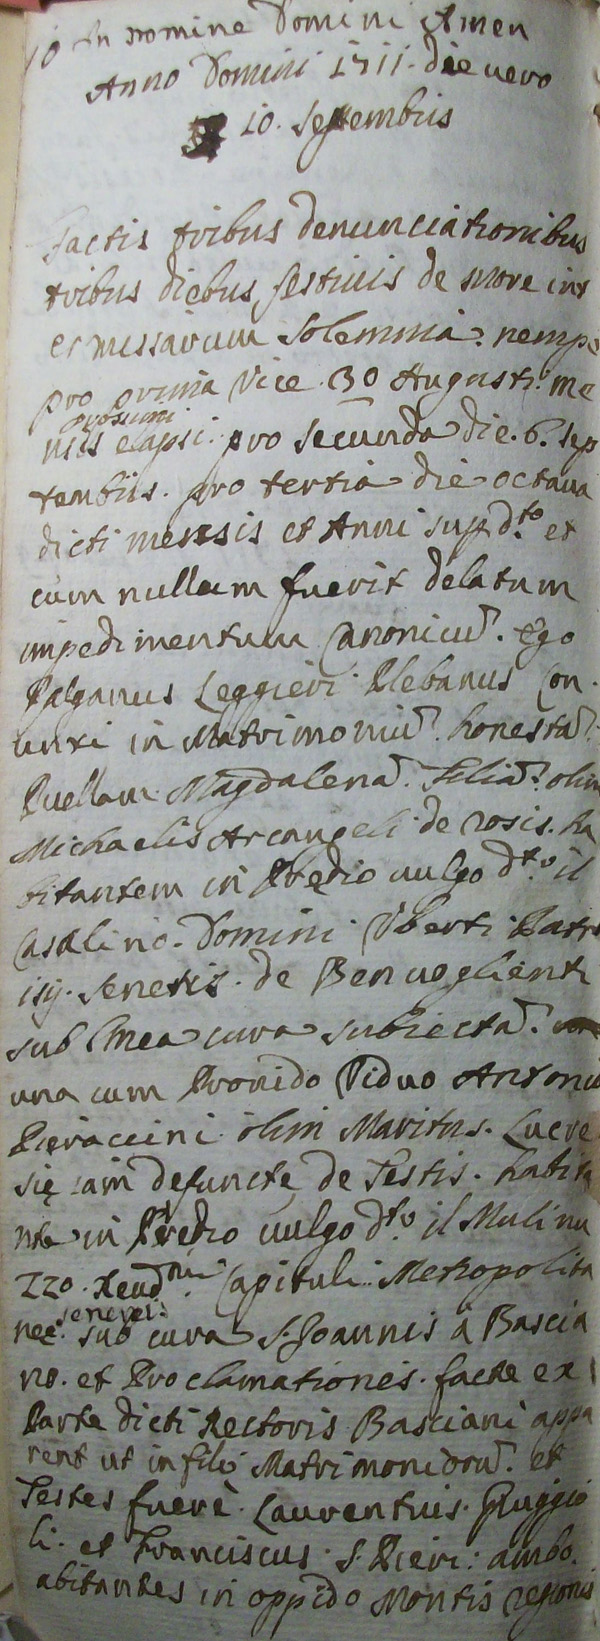 10 In nomine Domini Amen
Anno Domini 1711. die uero
10. Septembris
Factis tribus denunciationibus
tribus diebus festiuis de more int
er missarum Solemnia. nempe
pro prima Vice. 30 Augusti. me
proximi
nsis elapsi. pro secunda die. 6. sep
tembris. pro tertia die octaua
dicti mensis et Anni supd.to et
cum nullum fuerit delatum
impedimentum Canonicũ. Ego
Galganus Leggieri Plebanus Con
iunxi in Matrimoniũ. honestã.
Puellam Magdalenã. Filiã. olim
Michaelis Arcangeli de rosis. ha
bitantem in Predio uulgo dto. il
Casalino. Domini Vberti Patri
isij. Senesis. de Benuoglienti
sub Mea cura subiectã.
una cum Prouido Viduo Antonio
Pieraccini olim Maritus. Lucre
sie iam defuncte de Testis. habita
nte in Predio uulgo dto. il Mulinu
zzo. Reudmi. Capituli Metropolita
senensi.
nee. sub cura S. Joannis à Bascia
no. et Proclamationes. facte ex
Parte dicti Rectoris Basciani appa
rent ut in filo Matrimoniorũ. et
Testes fuere. Laurentius.
li. et Franciscus S. Pieri: ambo.
abitantes in oppido Montis regionis